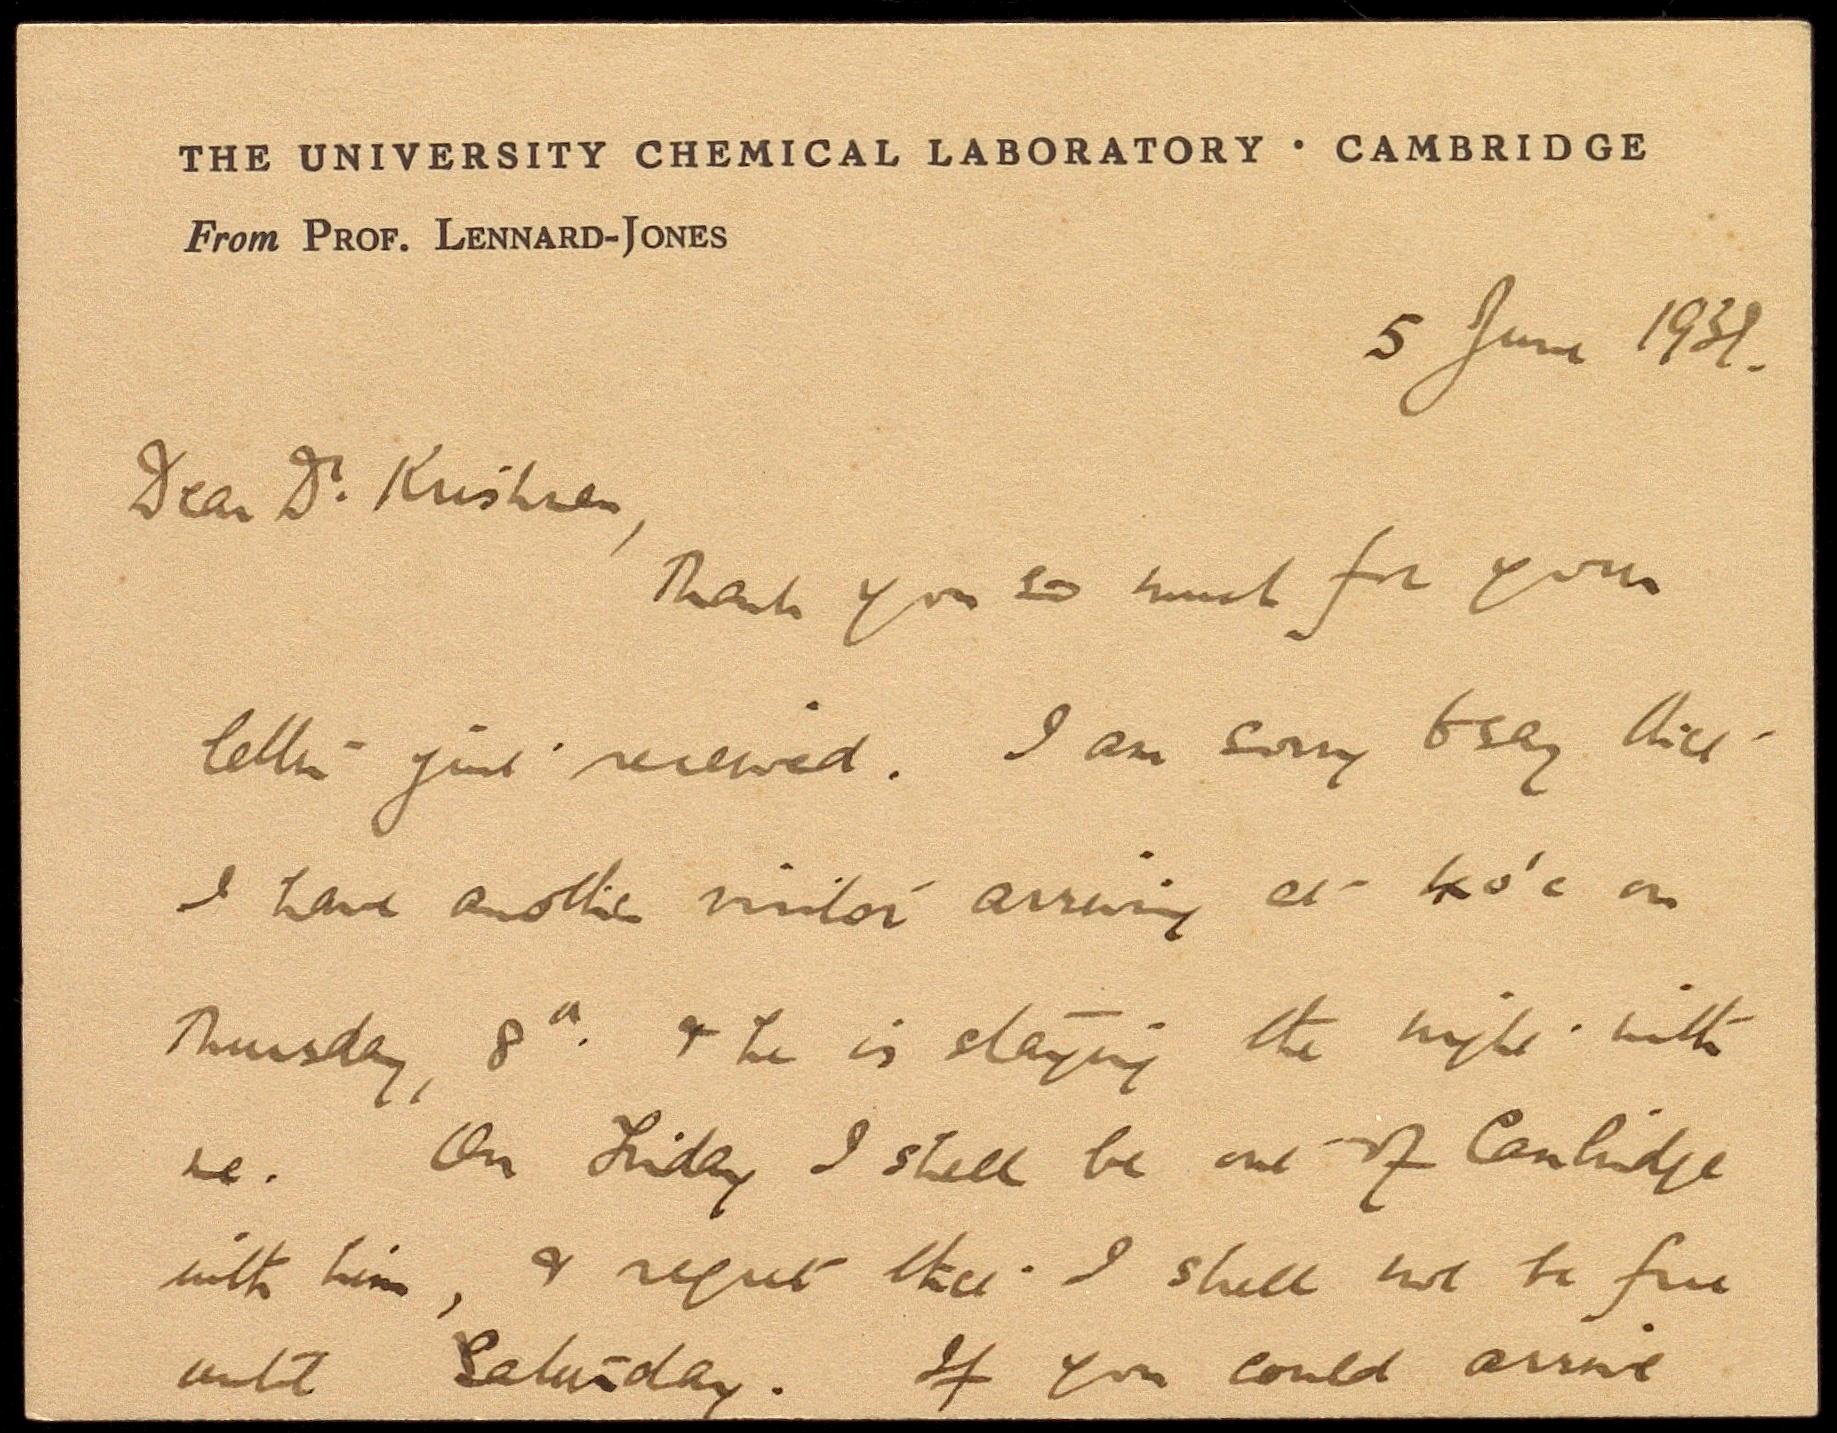 THE UNIVERSITY CHEMICAL LABORATORY · CAMBRIDGE
From PROF. LENNARD-JONES
5 June 1939.
Dear Dr. Krishnan,
Thank you so much for your
letter just received. I am sorry to say that
I have another visitor arriving at o'c on
Thursday, 8th. & he is staying the night with
me. On Friday I shall be out of Cambridge
with him, & regret that I shall not be free
until Saturday. If you could arrive